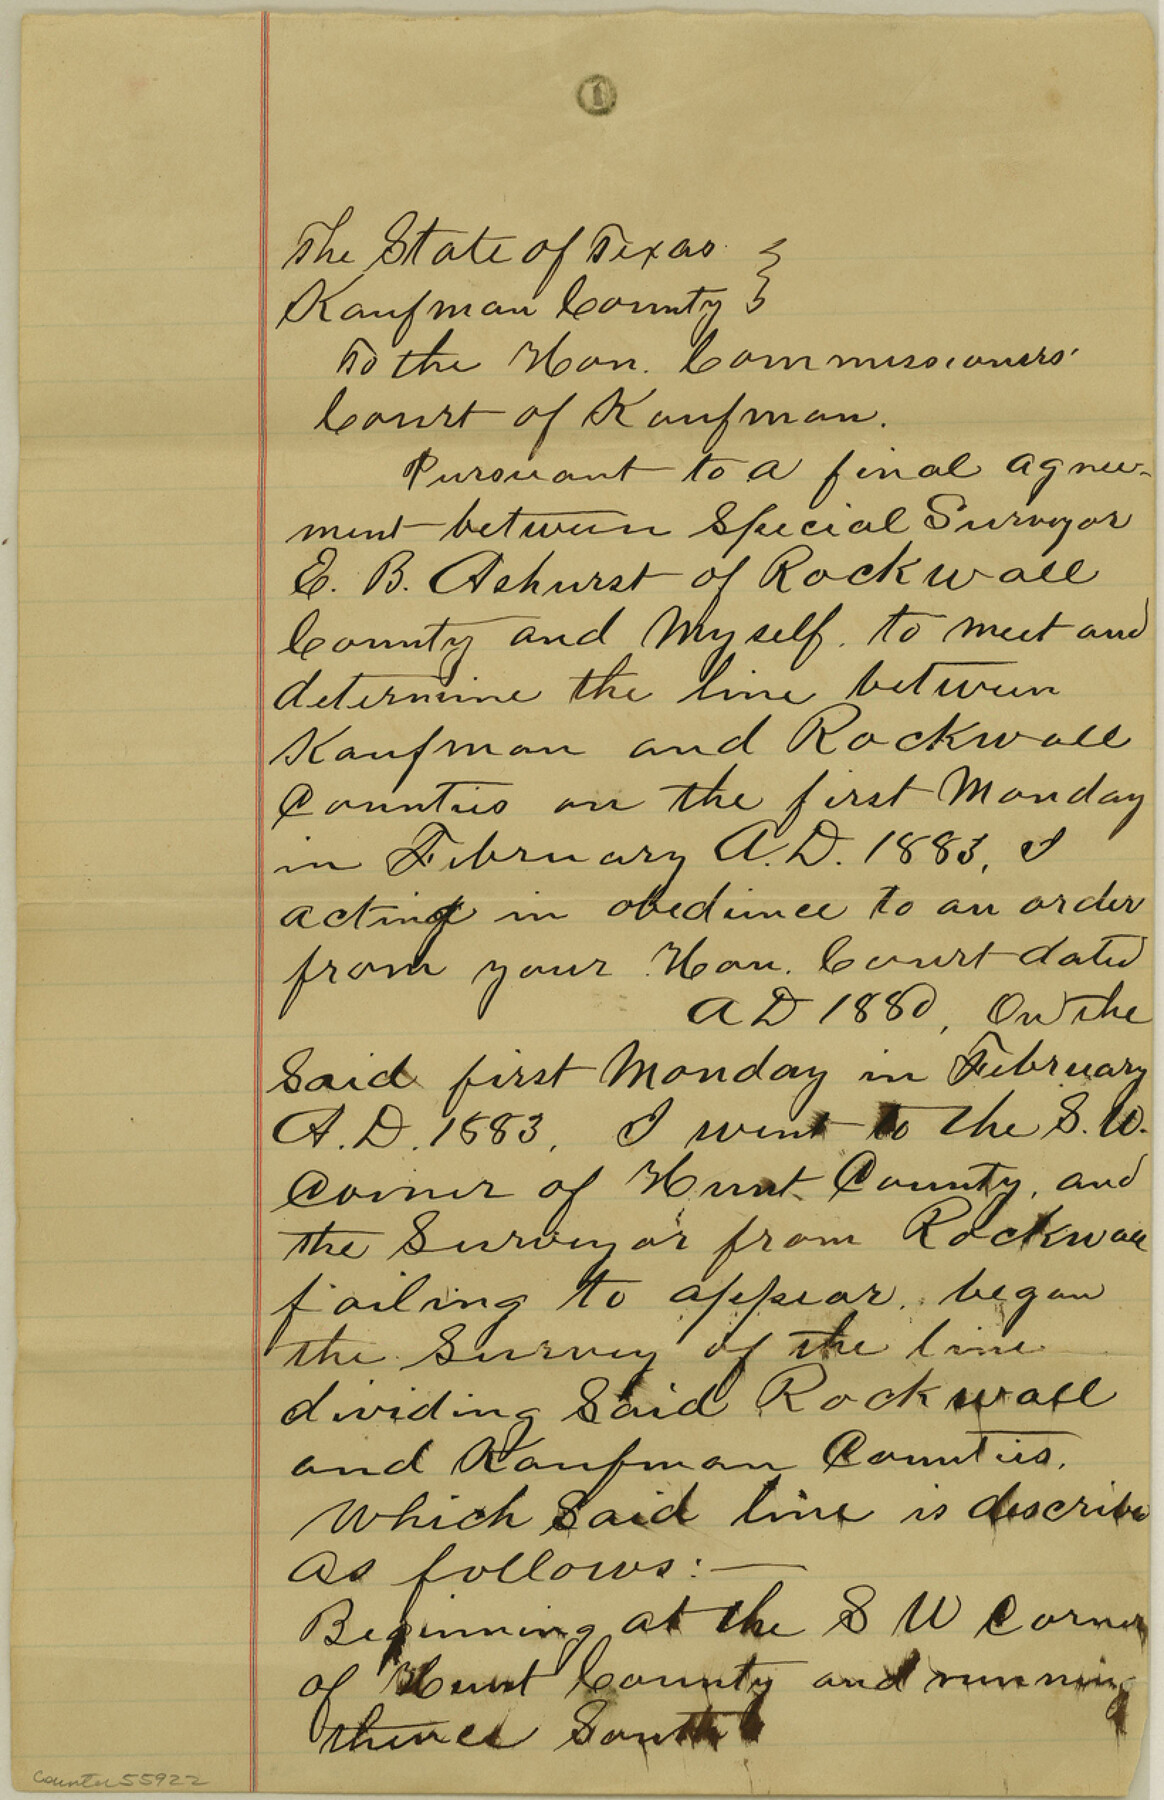 1
The State of Texas }
Kaufman County }
To the Hon. Commissioners'
Court of Kaufman.
Pursuant to a final agree-
ment between Special Surveyor
E. B. Ashurst of Rockwall
County and Myself. to meet and
determine the line between
Kaufman and Rockwall
Counties on the first Monday
in February A.D. 1883, I
acting in obedience to an order
from your Hon. Court dated
A D 1880, On the
Said first Monday in February
A.D. 1883, I went to the S.W.
Corner of Hunt County, and
the Surveyor from Rockwall
failing to appear, began
the Survey of the line
dividing Said Rockwall
and Kaufman Counties.
Which Said line is describe
as follows: —
Beginning at the S W Corner
of Hunt County and running
thence South
Counter 55922